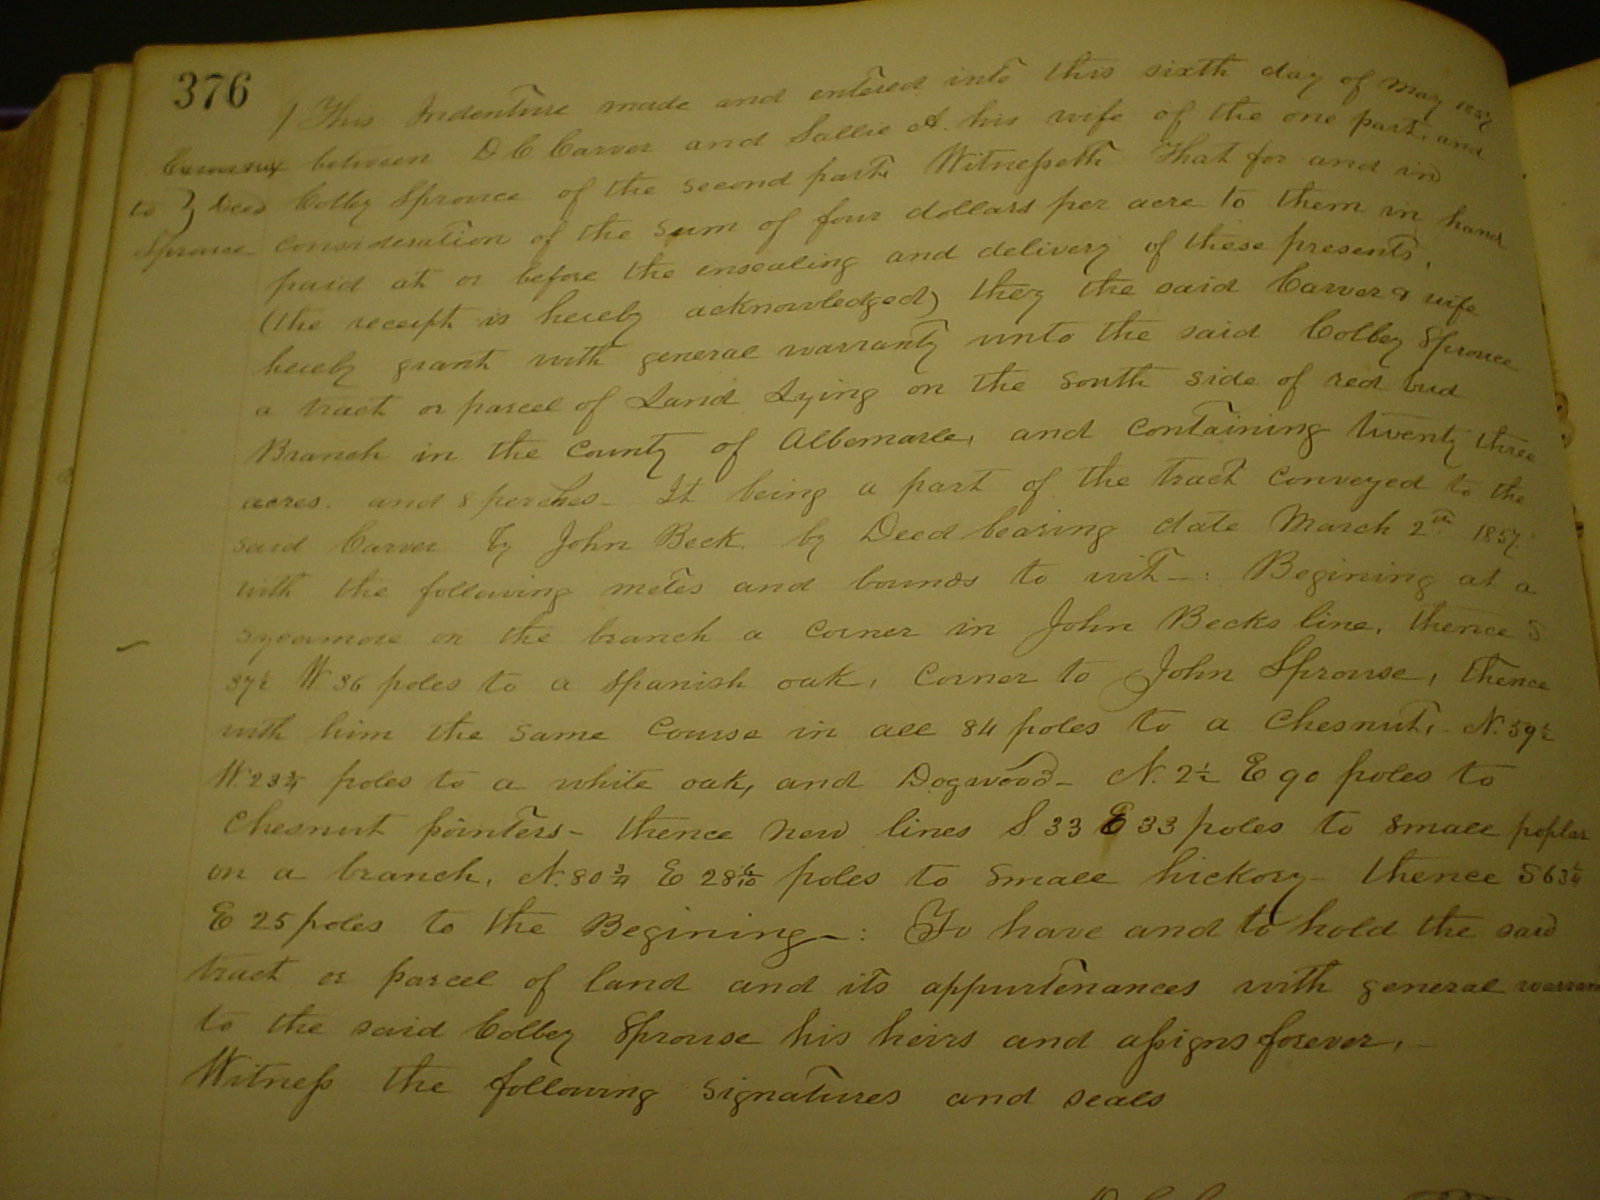 376
This Indenture made and entered into this sixth day of May
Carver & ux between D C Carver and Sallie A. his wife of the one part, and
to } Deed Colby Sprouce of the second part, Witnesseth That for and in
Sprouce consideration of the sum of four dollars per acre to them in hand
paid at or before the ensealing and delivery of these presents,
(the receipt is hereby acknowledged) they the said Carver & wife
hereby grant with general warranty unto the said Colbey Sprouce
a tract or parcel of Land Lying on the south side of red bud
Branch in the county of Albemarle, and containing twenty three
acres. and 8 perches - It being a part of the tract conveyed to the
said Carver by John Beck by Deed bearing date March 2nd 1857.
with the following metes and bounds to wit - : Begining at a
sycamore on the branch a corner in John Becks line, thence S
37½ W 36 poles to a spanish oak, corner to John Sprouse, thence
with him the same course in all 84 poles to a Chesnut, - N. 59½
W. 23¾ poles to a white oak, and Dogwood - N. 2½ E 90 poles to
Chesnut pointers - thence new lines S. 33 E 33 poles to small poplar
on a branch, N. 80¾ E 28 6/10 poles to small hickory - thence S 63¼
E 25 poles to the Begining - : To have and to hold the said
tract or parcel of land and its appurtenances with general
to the said Colbey Sprouse his heirs and assigns forever. -
Witness the following signatures and seals